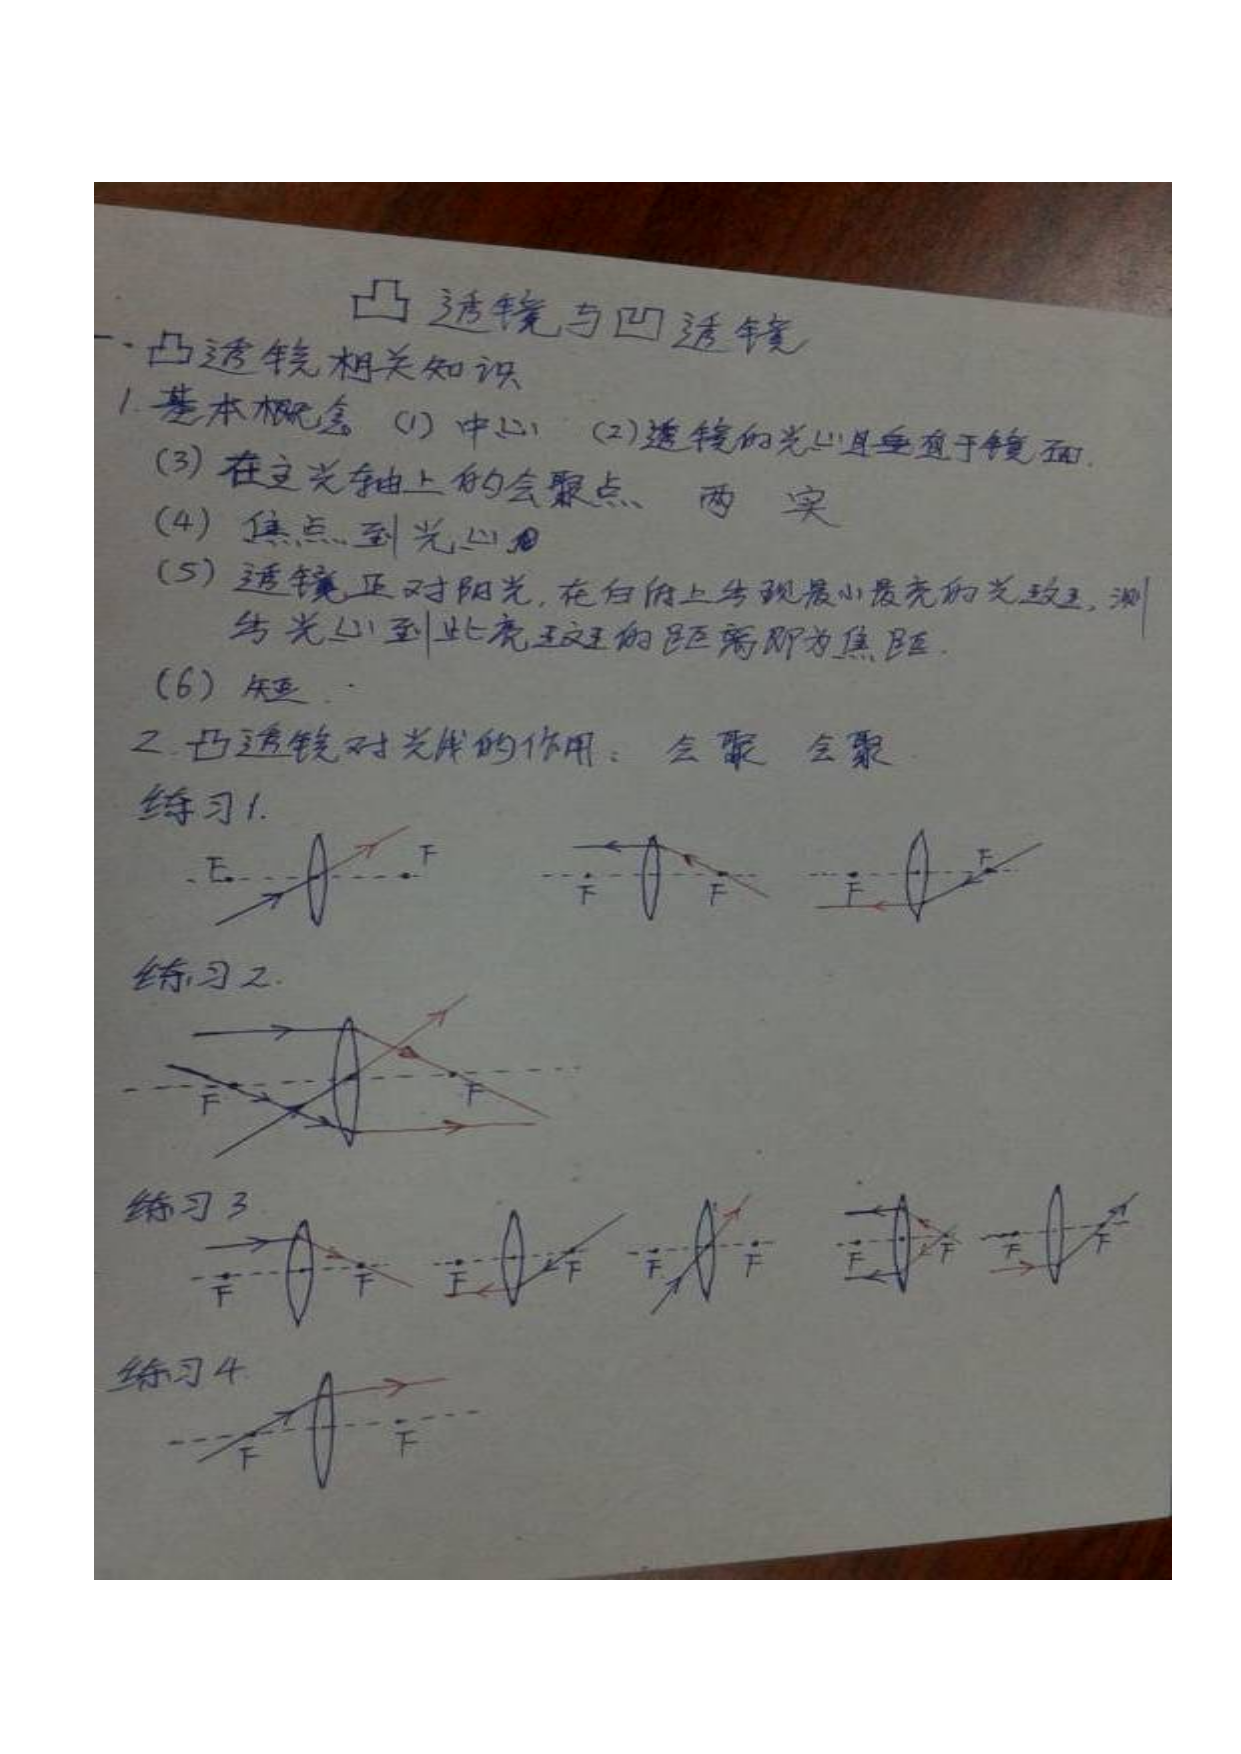 凸透镜与凹透镜
一.凸透镜相关知识
1.基本概念 (1) 中心 (2)透镜的光心且垂直于镜面.
(3) 在主光轴上的会聚点、 两 实
(4) 焦点到光心
(5) 透镜正对阳光,在白纸上出现最小最亮的光斑,测
出光心到此亮斑的距离即为焦距.
(6) 短.
2.凸透镜对光线的作用: 会聚 会聚.
练习1.
F F F F F F
练习2.
F F
练习3
F F F F F F F F F F
练习4.
F F